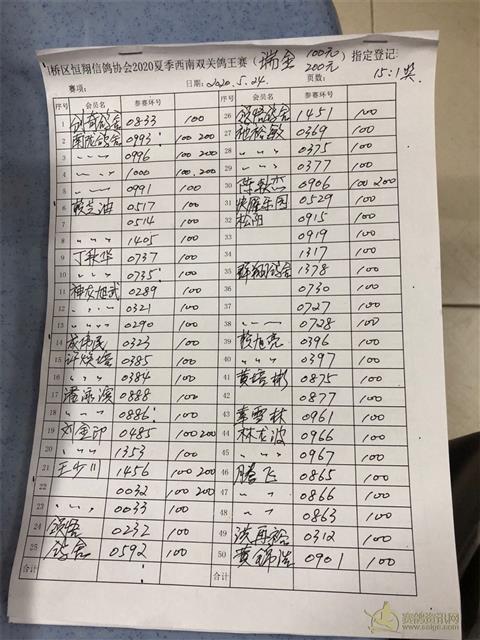 桥区恒翔信鸽协会2020夏季西南双关鸽王赛(瑞金 100元 200元)指定登记
赛项: 日期: 2020.5.24. 页数: 15:1奖
序号 会员名 参赛环号
1 0833 100
2 0993 100 200
3 〃 〃 〃 0996 100 200
4 〃 〃 1000 100 200
5 〃 〃 0991 100
6 0517 100
7 0514 100
8 〃 〃 〃 1405 100
9 丁秋华 0737 100
10 〃 〃 〃 0735 100
11 神农旭武 0289 100
12 0321 100
13 〃 〃 〃 0290 100
14 成伟民 0323 100
15 0385 100
16 〃 〃 0384 100
17 0888 100
18 〃 〃 〃 0886 100
19 刘金印 0485 100 200
20 〃 〃 〃 1353 100
21 王少川 1456 100 200
22 0032 100 200
23 〃 〃 〃 0033 100
24 0232 100
25 鸽舍 0592 100
合计
序号 会员名 参赛环号
26 1451 100
27 0369 100
28 〃 〃 〃 0375 100
29 〃 〃 0377 100
30 陈秋杰 0906 100 200
31 0529 100
32 松阳 0915 100
33 0919 100
34 1317 100
35 群翔鸽舍 1378 100
36 0730 100
37 0727 100
38 0728 100
39 0396 100
40 〃 〃 0397 100
41 黄培彬 0875 100
42 0877 100
43 韦雪林 0961 100
44 林龙波 0966 100
45 〃 〃 0967 100
46 腾飞 0865 100
47 〃 〃 0866 100
48 〃 〃 0863 100
49 洪再裕 0312 100
50 0901 100
合计
赛鸽资讯网
www.saige.com